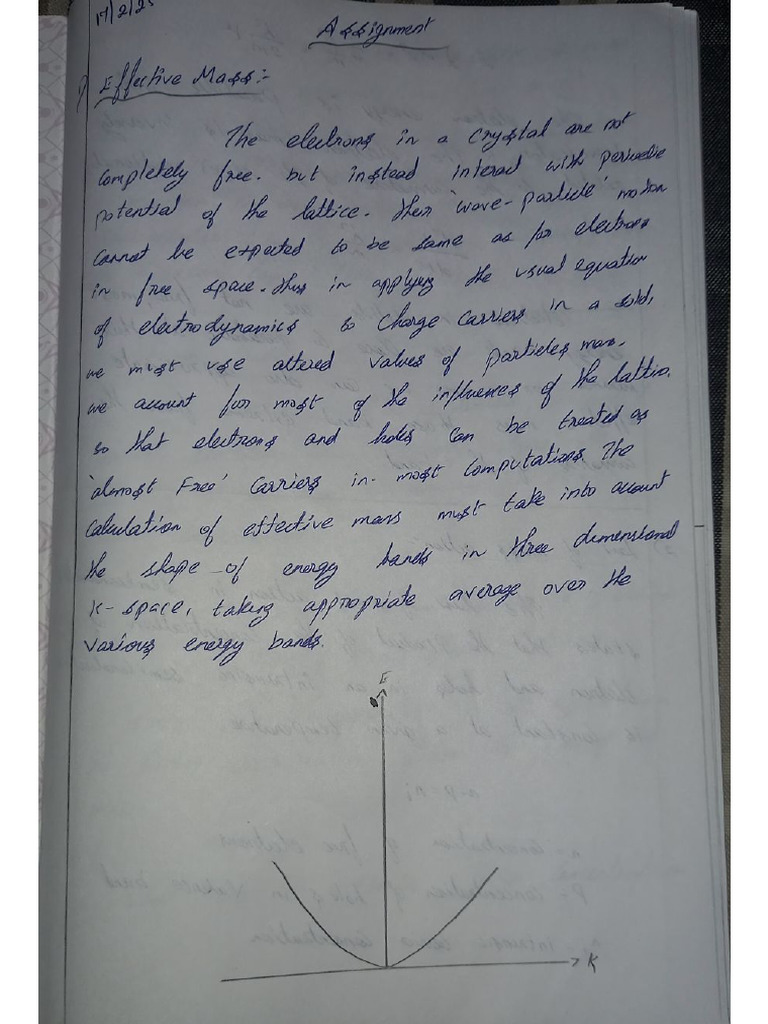 17/2/25
Assignment
1) Effective Mass:-
The electrons in a crystal are not
completely free. but instead interact with periodic
potential of the lattice. Their 'wave-particle' motion
cannot be expected to be same as for electrons
in free space. Thus in applying the usual equation
of electrodynamics to charge carriers in a solid,
we must use altered values of particles mass.
we account for most of the influences of the lattice.
so that electrons and holes can be treated as
'almost Free' carriers in most computations. The
calculation of effective mass must take into account
the shape of energy bands in three dimensional
K-space, taking appropriate average over the
various energy bands.
E
K